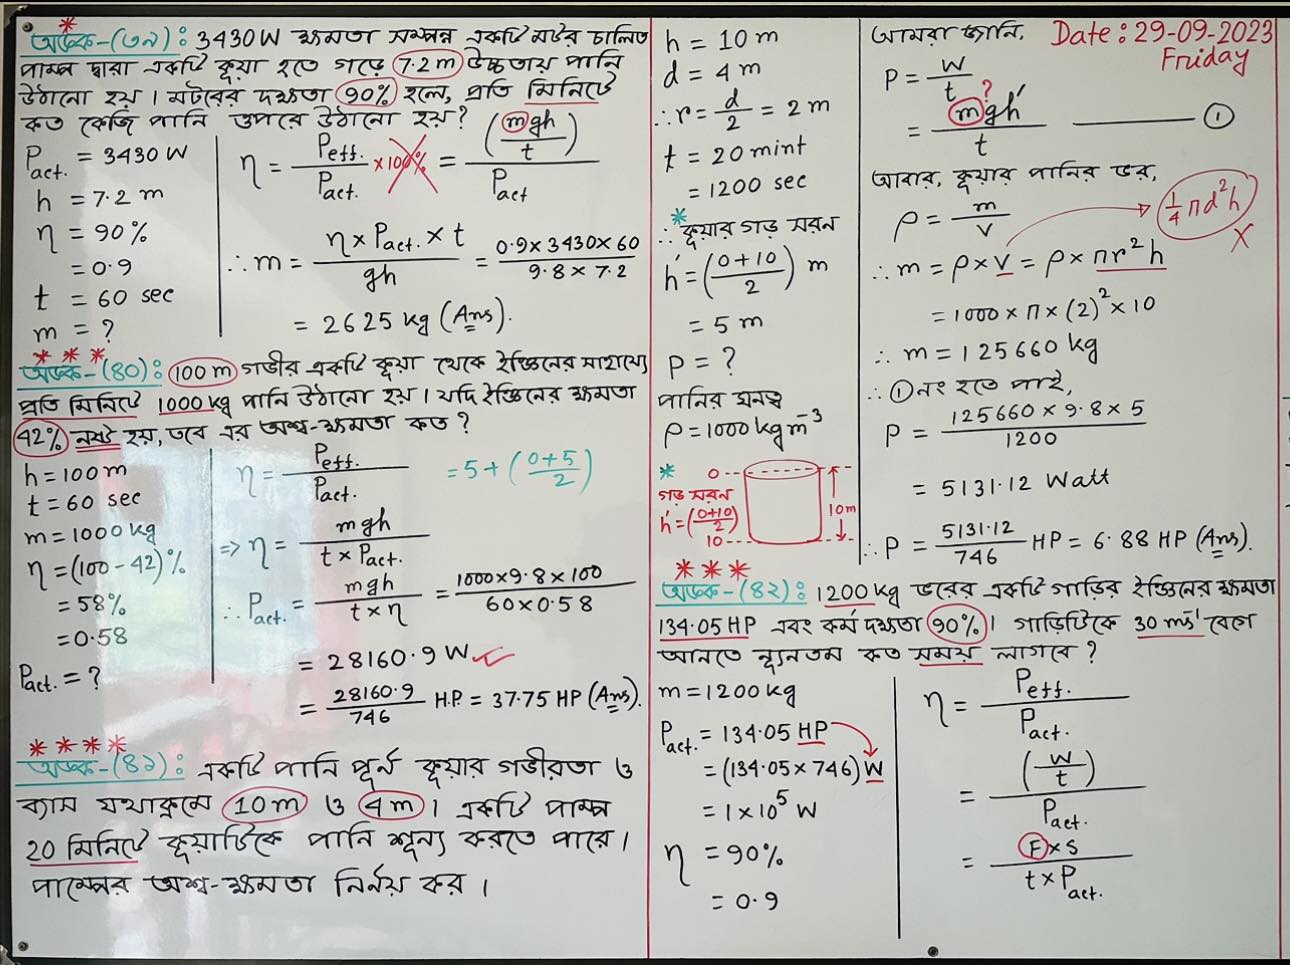 অংক-(৩৯): 3430W ক্ষমতা সম্পন্ন একটি মটর চালিত
পাম্প দ্বারা একটি কূয়া হতে গড়ে 7.2 m উচ্চতায় পানি
উঠানো হয়। মটরের দক্ষতা 90% হলে, প্রতি মিনিটে
কত কেজি পানি উপরে উঠানো হয়?
P_act. = 3430 W
h = 7.2 m
η = 90%
= 0.9
t = 60 sec
m = ?
η = P_eff. / P_act. × 100% = (mgh / t) / P_act
∴ m = (η × P_act. × t) / gh = (0.9 × 3430 × 60) / (9.8 × 7.2)
= 2625 kg (Ans).
অংক-(৪০): 100 m গভীর একটি কূয়া থেকে ইঞ্জিনের সাহায্যে
প্রতি মিনিটে 1000 kg পানি উঠানো হয়। যদি ইঞ্জিনের ক্ষমতা
42% নষ্ট হয়, তবে এর অশ্ব-ক্ষমতা কত?
h = 100 m
t = 60 sec
m = 1000 kg
η = (100 - 42)%
= 58%
= 0.58
P_act. = ?
η = P_eff. / P_act.
= 5 + ((0+5) / 2)
⇒ η = mgh / (t × P_act.)
∴ P_act. = mgh / (t × η) = (1000 × 9.8 × 100) / (60 × 0.58)
= 28160.9 W
= 28160.9 / 746 H.P. = 37.75 HP (Ans).
অংক-(৪১): একটি পানি পূর্ন কূয়ার গভীরতা ও
ব্যাস যথাক্রমে 10 m ও 4 m। একটি পাম্প
20 মিনিটে কূয়াটিকে পানি শূন্য করতে পারে।
পাম্পের অশ্ব-ক্ষমতা নির্নয় কর।
h = 10 m
d = 4 m
∴ r = d/2 = 2 m
t = 20 mint
= 1200 sec
∴ কূয়ার গড় সরন
h′ = ((0+10) / 2) m
= 5 m
P = ?
পানির ঘনত্ব
ρ = 1000 kgm⁻³
গড় সরন
h′ = ((0+10) / 2)
0
10
10m
আমরা জানি,
Date: 29-09-2023
Friday
P = W / t
?
= mgh′ / t ——— ①
আবার, কূয়ার পানির ভর,
ρ = m / V
¼πd²h
X
∴ m = ρ × V = ρ × πr²h
= 1000 × π × (2)² × 10
∴ m = 125660 kg
∴ ① নং হতে পাই,
P = (125660 × 9.8 × 5) / 1200
= 5131.12 Watt
∴ P = 5131.12 / 746 HP = 6.88 HP (Ans).
অংক-(৪২): 1200 kg ভরের একটি গাড়ির ইঞ্জিনের ক্ষমতা
134.05 HP এবং কর্ম দক্ষতা 90%। গাড়িটিকে 30 ms⁻¹ বেগে
আনতে ন্যূনতম কত সময় লাগবে?
m = 1200 kg
P_act. = 134.05 HP
= (134.05 × 746) W
= 1 × 10⁵ W
η = 90%
= 0.9
η = P_eff. / P_act.
= (W / t) / P_act.
= (F × s) / (t × P_act.)